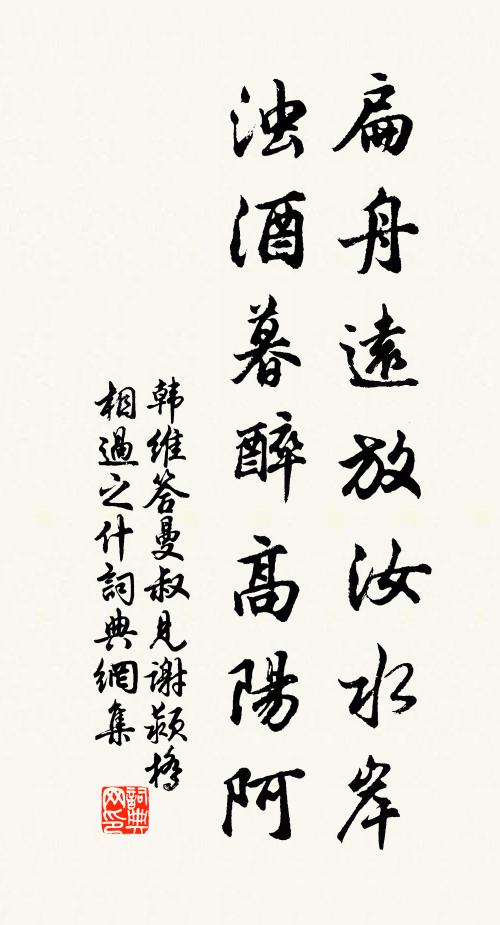 扁舟遠放汝水岸
浊酒暮醉高陽阿
韩维答曼叔見谢颍橋
相過之什詞典網集
詞典网印